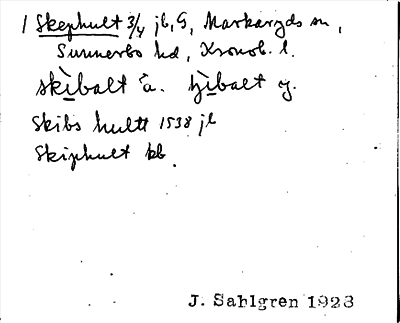 1 Skephult 3/4 jb, G, Markaryds sn,
Sunnerbo hd, Kronob. l.
skìbalt ä. tjìbalt y.
Skibs hultt 1538 jb
Skiphult kb.
J. Sahlgren 1923